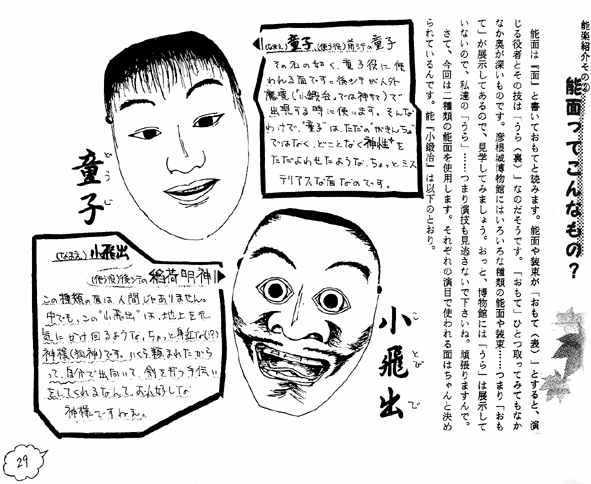 能楽紹介その②
能面ってこんなもの？
能面は『面』と書いておもてと読みます。能面や装束が「おもて（表）」とすると、演
じる役者とその技は「うら（裏）」なのだそうです。「おもて」ひとつ取ってみてもなか
なか奥が深いものです。彦根城博物館にはいろいろな種類の能面や装束……つまり「おも
て」が展示してあるので、見学してみましょう。おっと、博物館には「うら」は展示して
いないので、私達の「うら」……つまり演技も見逃さないで下さいね。頑張りますんで。
さて、今回は二種類の能面を使用します。それぞれの演目で使われる面はちゃんと決め
られているんです。能『小鍛冶』は以下のとおり。
(なまえ) 童子 (使う役) 前シテの童子
その名の如く、童子役に使
われる面です。後シテが人外
魔境（“小鍛冶”では神サマ）で
出現する時に使います。そんな
わけで、“童子”は、ただの“がきんちょ”
ではなく、どことなく“神性”を
ただよわせたような、ちょっとミス
テリアスな面なのです。
童子
どうじ
(なまえ) 小飛出
(使う役) 後シテの稲荷明神
この種類の面は人間じゃありません。
中でも、この“小飛出”は、地上を元
気にかけ回るような、ちょっと身近な(!?)
神様(狐神)です。いくら頼まれたから
って、自分で出向いて、剣を打つ手伝い
をしてくれるなんて、お人好しな
神様ですねえ。
小飛出
ことびで
29